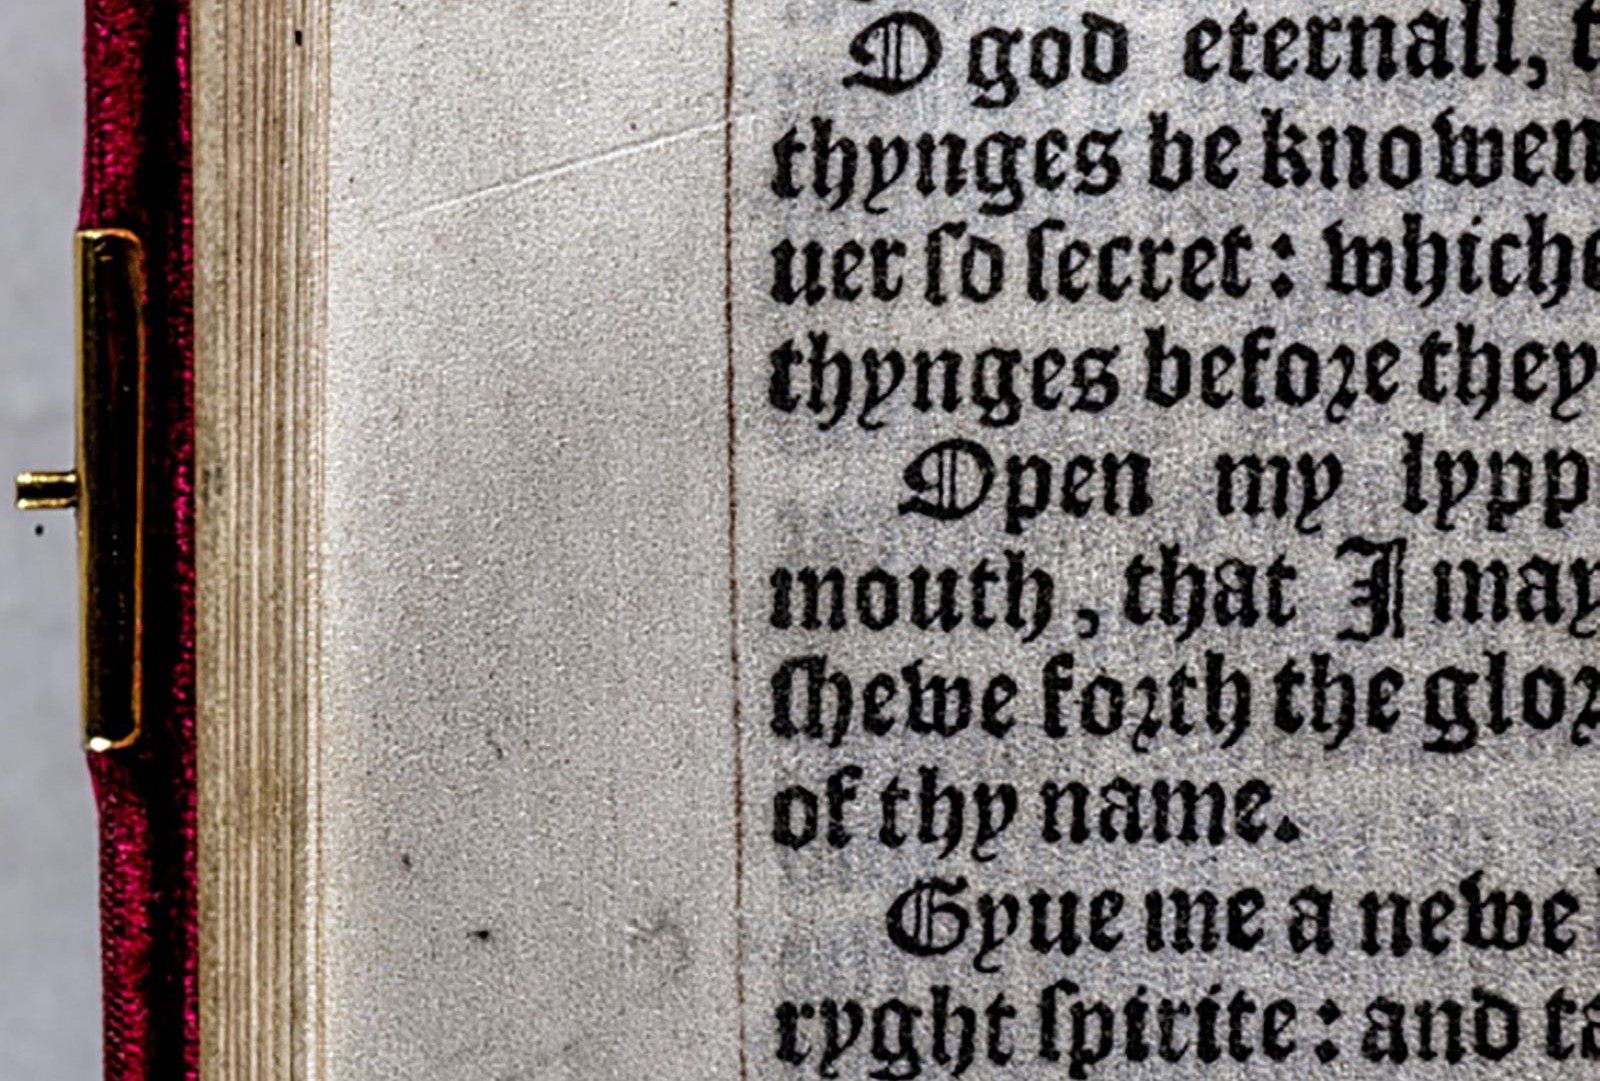 O god eternall, t
thynges be knowen
uer ſo ſecret: whiche
thynges befoꝛe they
Open my lypp
mouth, that I may
ſhewe foꝛth the gloꝛ
of thy name.
Gyue me a newe
ryght ſpirite: and ta